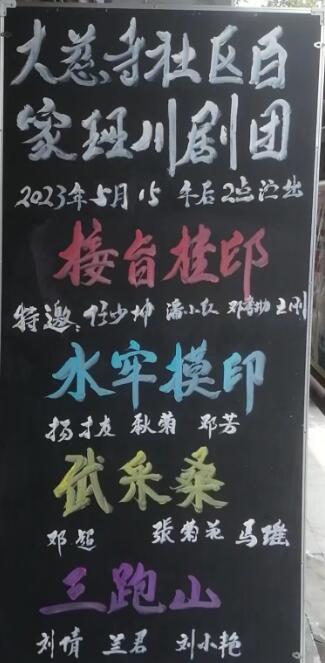 大慈寺社区百
家班川剧团
2023年5月15 午后2点演出
接旨挂印
特邀：任少坤 潘小红 邓寿勋 王刚
水牢摸印
扬才友 秋菊 邓芳
武采桑
邓超 张菊花 马瑶
三跑山
刘倩 兰君 刘小艳